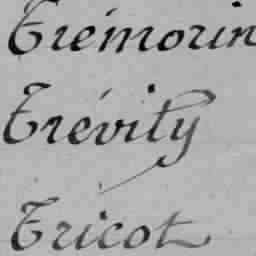 Trémorin
Trévily
Tricot